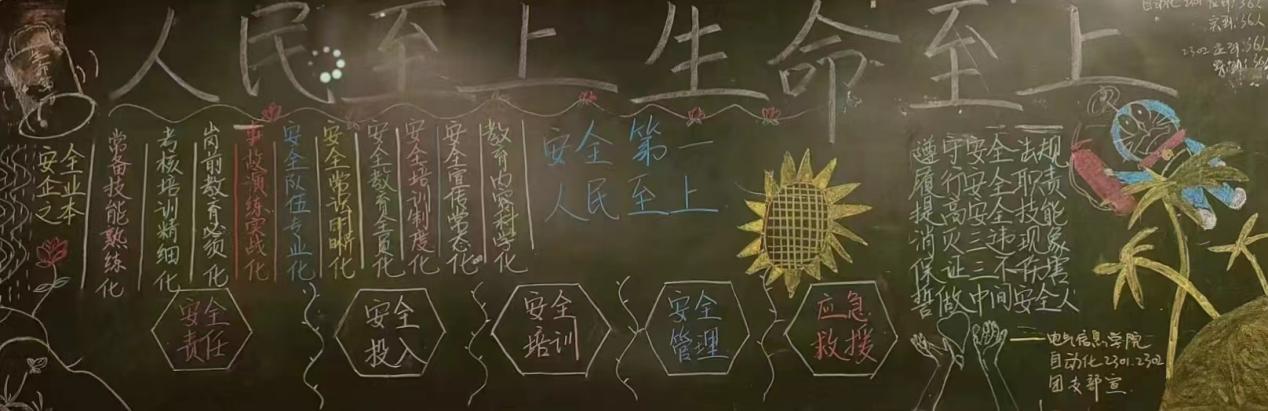 人民至上生命至上
安全
企业
之本
常备技能熟练化
考核培训精细化
岗前教育必须化
事故演练实战化
安全队伍专业化
安全常识明晰化
安全教育全员化
安全培训制度化
安全宣传常态化
教育内容科学化
安全第一
人民至上
遵守安全法规
履行安全职责
提高安全技能
消灭三违现象
保证三不伤害
誓做中间安全人
安全
责任
安全
投入
安全
培训
安全
管理
应急
救援
电气信息学院
自动化2301.2302
团支部宣